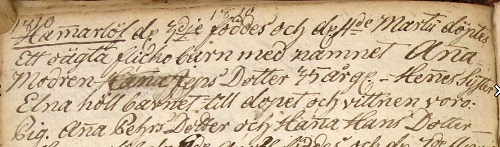 1810 1810
Hamarlöf dp 3die föddes och dp 4de Martii döptes
Ett oägta flicko barn med namnet Ana
Modren Hana Jeps Dotter 25 år gl. - Henes Syster
Elna höll barnet till dopet och vittnen voro
Pig. Ana Pehrs Dotter och Hana Hans Dotter